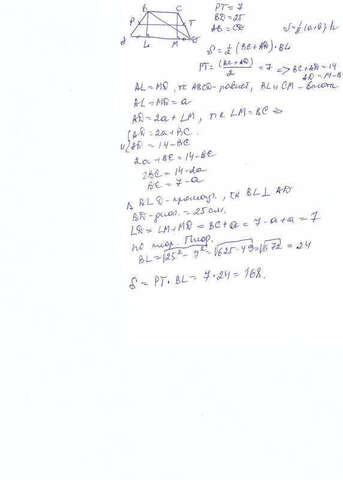 B C
P T
A L M D
PT = 7
BD = 25
AB = CD
S = ½ (BC + AD) · BL
PT = (BC + AD) / 2 = 7 => BC + AD = 14
AD = 14 - BC
AL = MD, тк ABCD - равноб, BL и CM - высоты
AL = MD = a
AD = 2a + LM, т к LM = BC =>
{ AD = 2a + BC.
AD = 14 - BC
2a + BC = 14 - BC
2BC = 14 - 2a
BC = 7 - a
Δ BLD - прямоуг., тк BL ⊥ AD
BD - диаг. = 25 см.
LD = LM + MD = BC + a = 7 - a + a = 7
по теор. Пифаг.
BL = √25² - 7² = √625 - 49 = √572 = 24
S = PT · BL = 7 · 24 = 168.